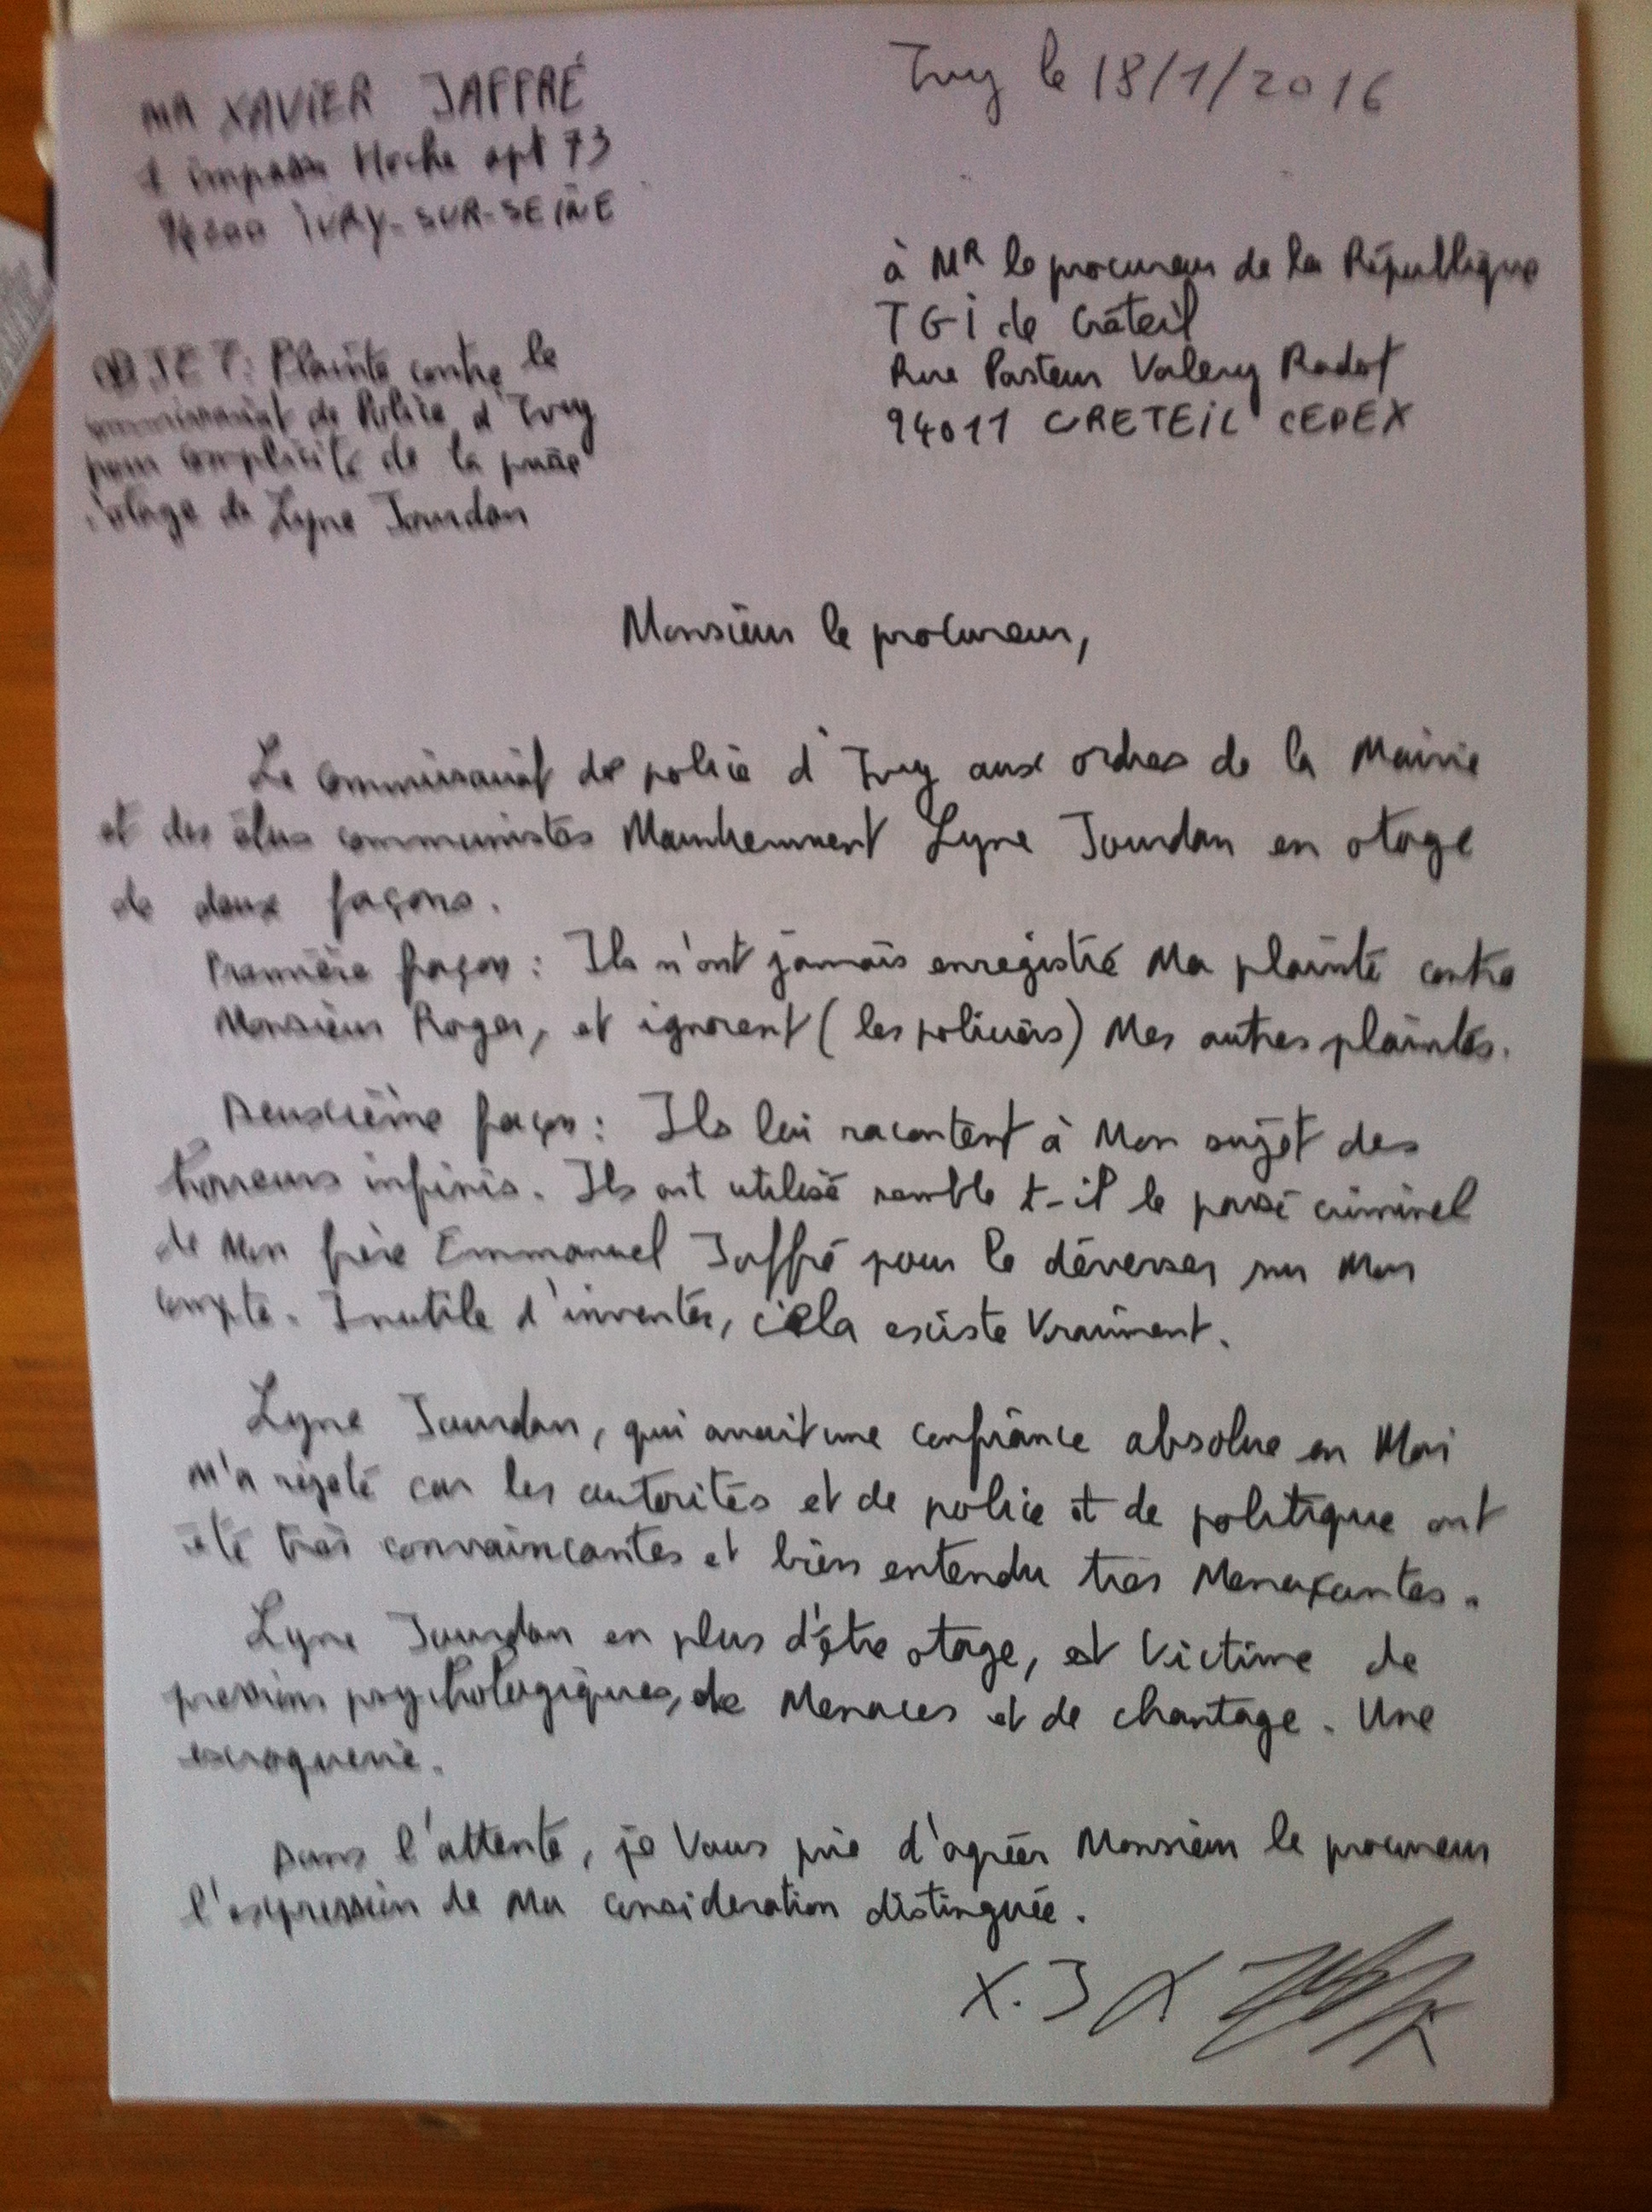 MR XAVIER JAFFRÉ
1 impasse Hoche apt 73
94200 IVRY-SUR-SEINE
Ivry le 18/1/2016
à MR le procureur de la République
TGI de Créteil
Rue Pasteur Valery Radot
94011 CRETEIL CEDEX
OBJET: Plainte contre le
commissariat de Police d'Ivry
pour complicité de la prise
d'otage de Lyne Jourdan
Monsieur le procureur,
Le commissariat de police d'Ivry aux ordres de la Mairie
et des élus communistes Maintiennent Lyne Jourdan en otage
de deux façons.
Première façon : Ils n'ont jamais enregistré Ma plainte contre
Monsieur Roger, et ignorent (les policiers) Mes autres plaintes.
Deuxième façon : Ils lui racontent à Mon sujet des
horreurs infinis. Ils ont utilisé semble t-il le passé criminel
de Mon frère Emmanuel Jaffré pour le déverser sur Mon
compte. Inutile d'inventer, cela existe Vraiment.
Lyne Jourdan, qui avait une confiance absolue en Moi
M'a rejeté car les autorités et de police et de politique ont
été très convaincantes et bien entendu très Menaçantes.
Lyne Jourdan en plus d'être otage, est Victime de
pressions psychologiques, de Menaces et de chantage. Une
escroquerie.
Dans l'attente, je Vous prie d'agréer Monsieur le procureur
l'expression de Ma consideration distinguée.
X. J